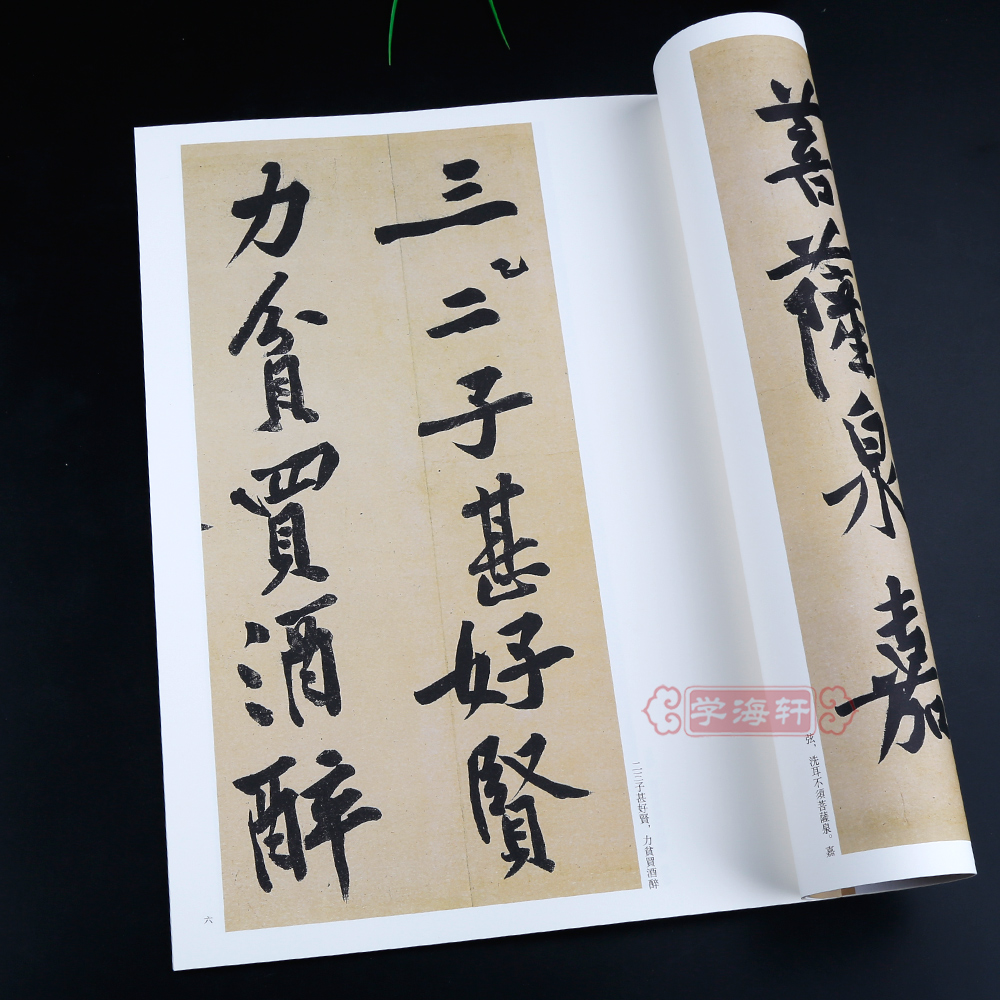 菩薩泉嘉
弦、洗耳不須菩薩泉。嘉
三二子甚好賢
力貧買酒醉
二三子甚好賢，力貧買酒醉
六
学海轩